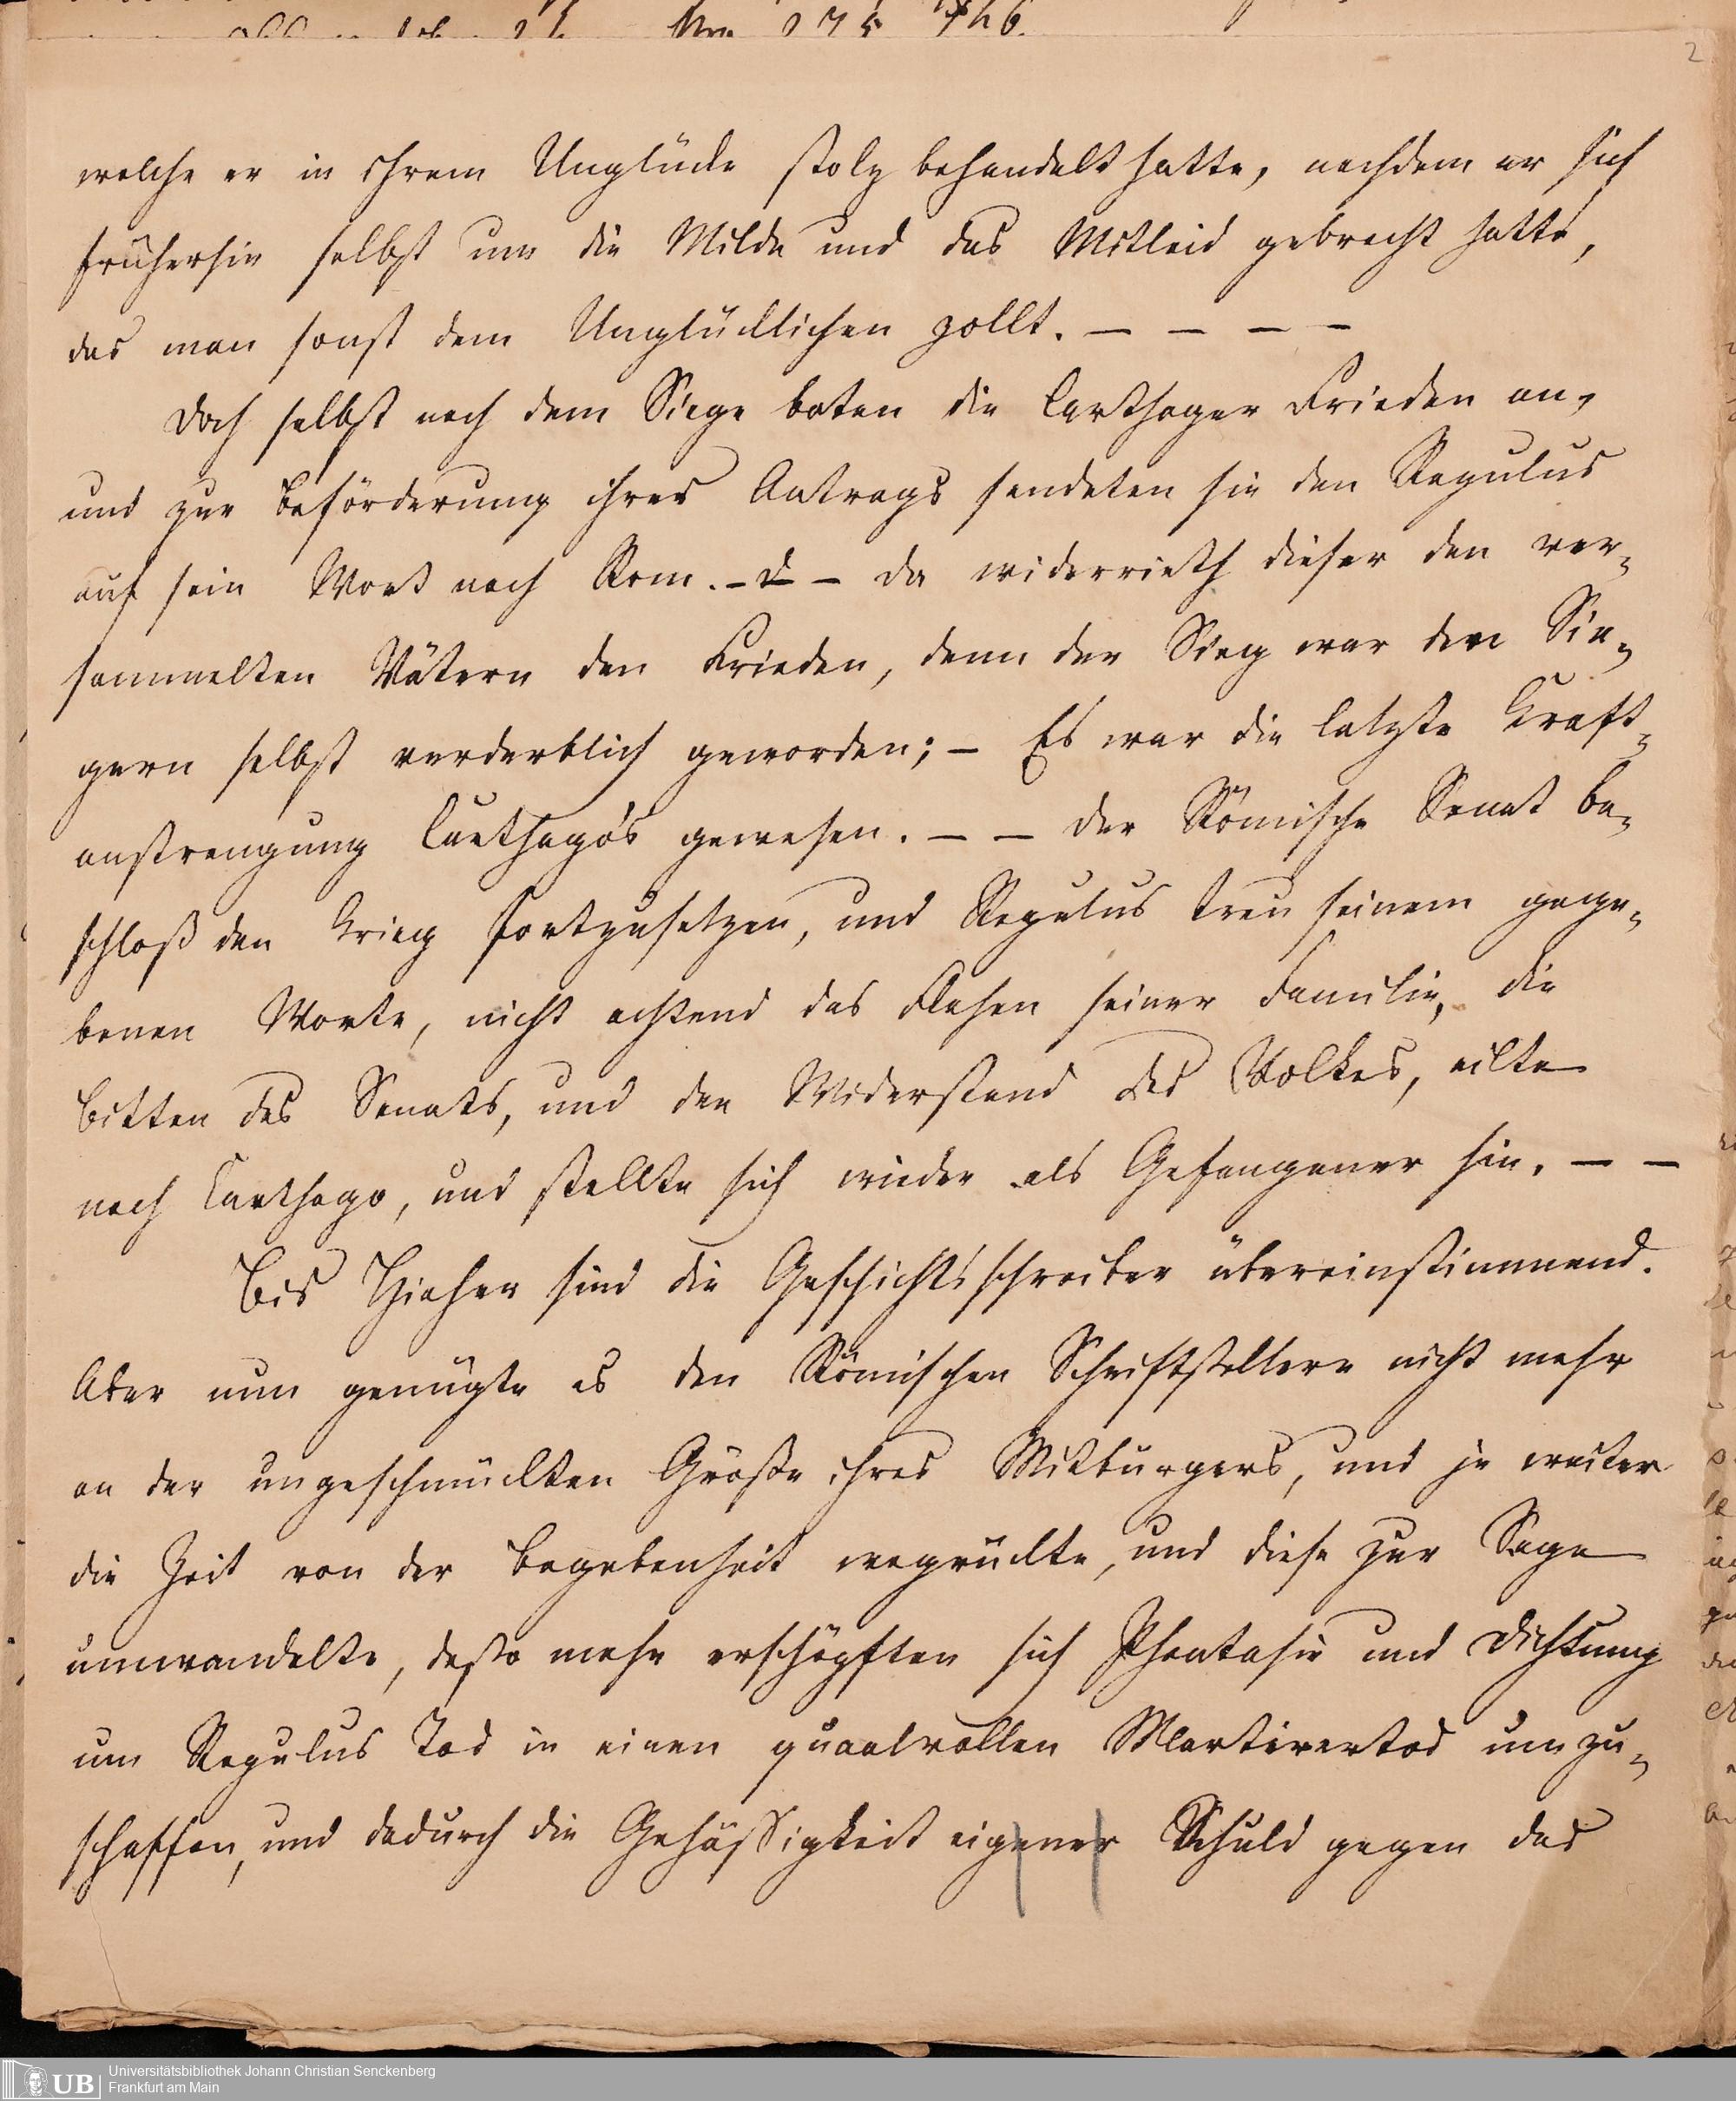 2
welche er in ihrem Unglücke stolz behandelt hatte, nachdem er sich
früherhin selbst um die Milde und das Mitleid gebracht hatte,
das man sonst dem Unglücklichen zollt. – – – –
Doch selbst nach dem Siege boten die Carthager Frieden an,
und zur Beförderung ihres Antrags sendeten sie den Regulus
auf sein Wort nach Rom. – – da widerrieth dieser den ver-
sammelten Vätern den Frieden, denn der Sieg war den Sie-
gern selbst verderblich geworden; – Es war die letzte Kraft-
anstrengung Carthago's gewesen. – – der Römische Senat be-
schloß den Krieg fortzusetzen, und Regulus treu seinem gege-
benen Worte, nicht achtend das Flehen seiner Familie, die
Bitten des Senats, und den Widerstand des Volkes, eilte
nach Carthago, und stellte sich wieder als Gefangener hin. – –
Bis Hieher sind die Geschichtsschreiber übereinstimmend.
Aber nun genügte es den Römischen Schriftstellern nicht mehr
an der ungeschmückten Größe ihres Mitbürgers, und je weiter
die Zeit von der Begebenheit wegrückte, und diese zur Sage
umwandelte, desto mehr erschöpften sich Phantasie und Dichtung
um Regulus Tod in einen quaalvollen Martirertod umzu-
schaffen, und dadurch die Gehässigkeit eigener Schuld gegen das
UB
Universitätsbibliothek Johann Christian Senckenberg
Frankfurt am Main